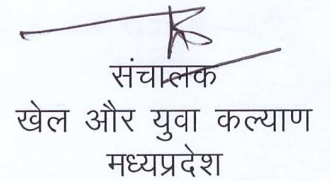 संचालक
खेल और युवा कल्याण
मध्यप्रदेश